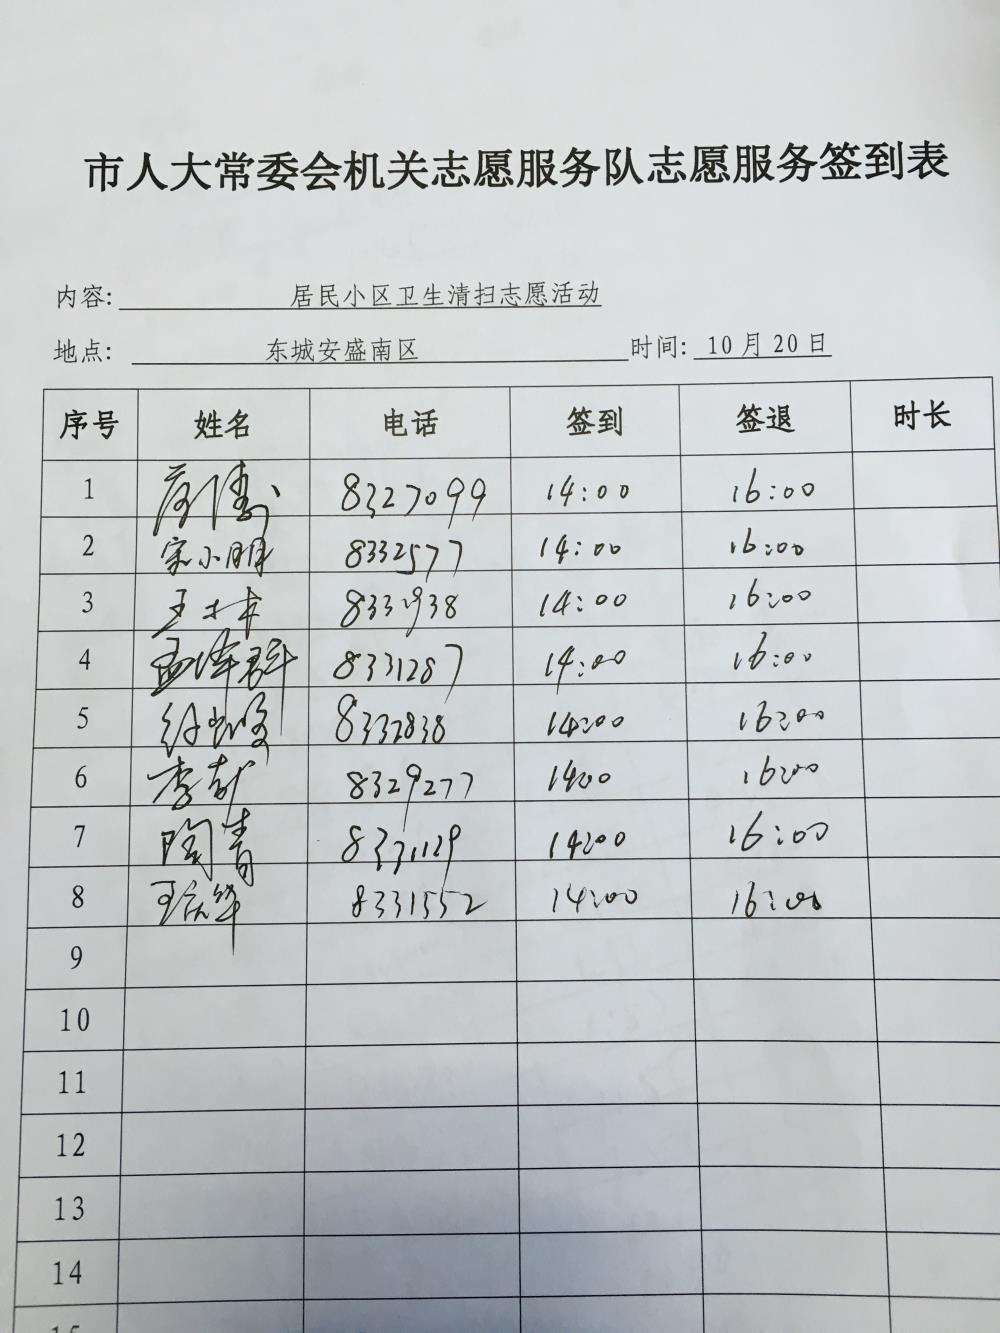 市人大常委会机关志愿服务队志愿服务签到表
内容: 居民小区卫生清扫志愿活动
地点: 东城安盛南区 时间: 10月20日
序号 姓名 电话 签到 签退 时长
1 8327099 14:00 16:00
2 宋小明 8332577 14:00 16:00
3 王 8332938 14:00 16:00
4 孟泽群 8331287 14:00 16:00
5 8332838 14:00 16:00
6 李 8329277 1400 16:00
7 陶青 8331129 14:00 16:00
8 8331552 14:00 16:00
9
10
11
12
13
14
15